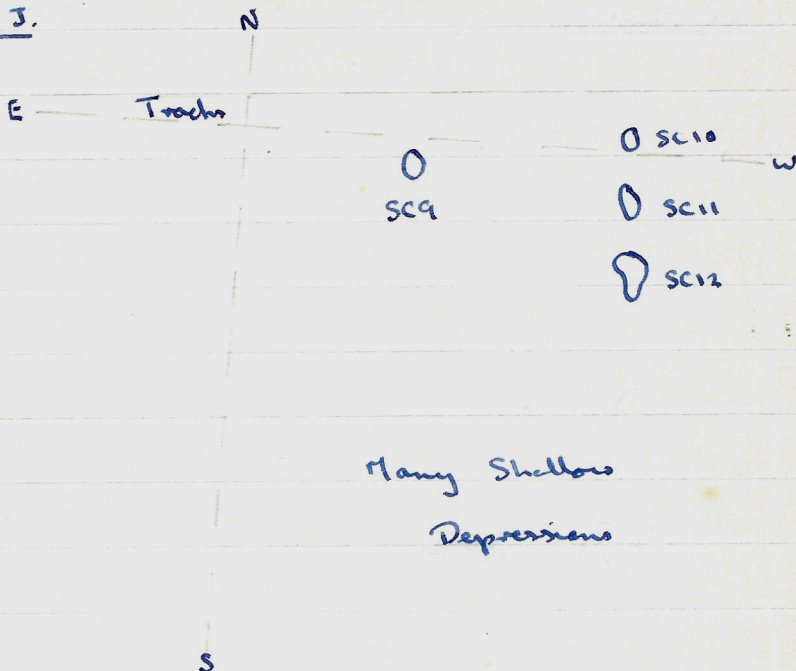 J.
N
E
Tracks
SC10
W
SC9
SC11
SC12
Many Shallow
Depressions
S